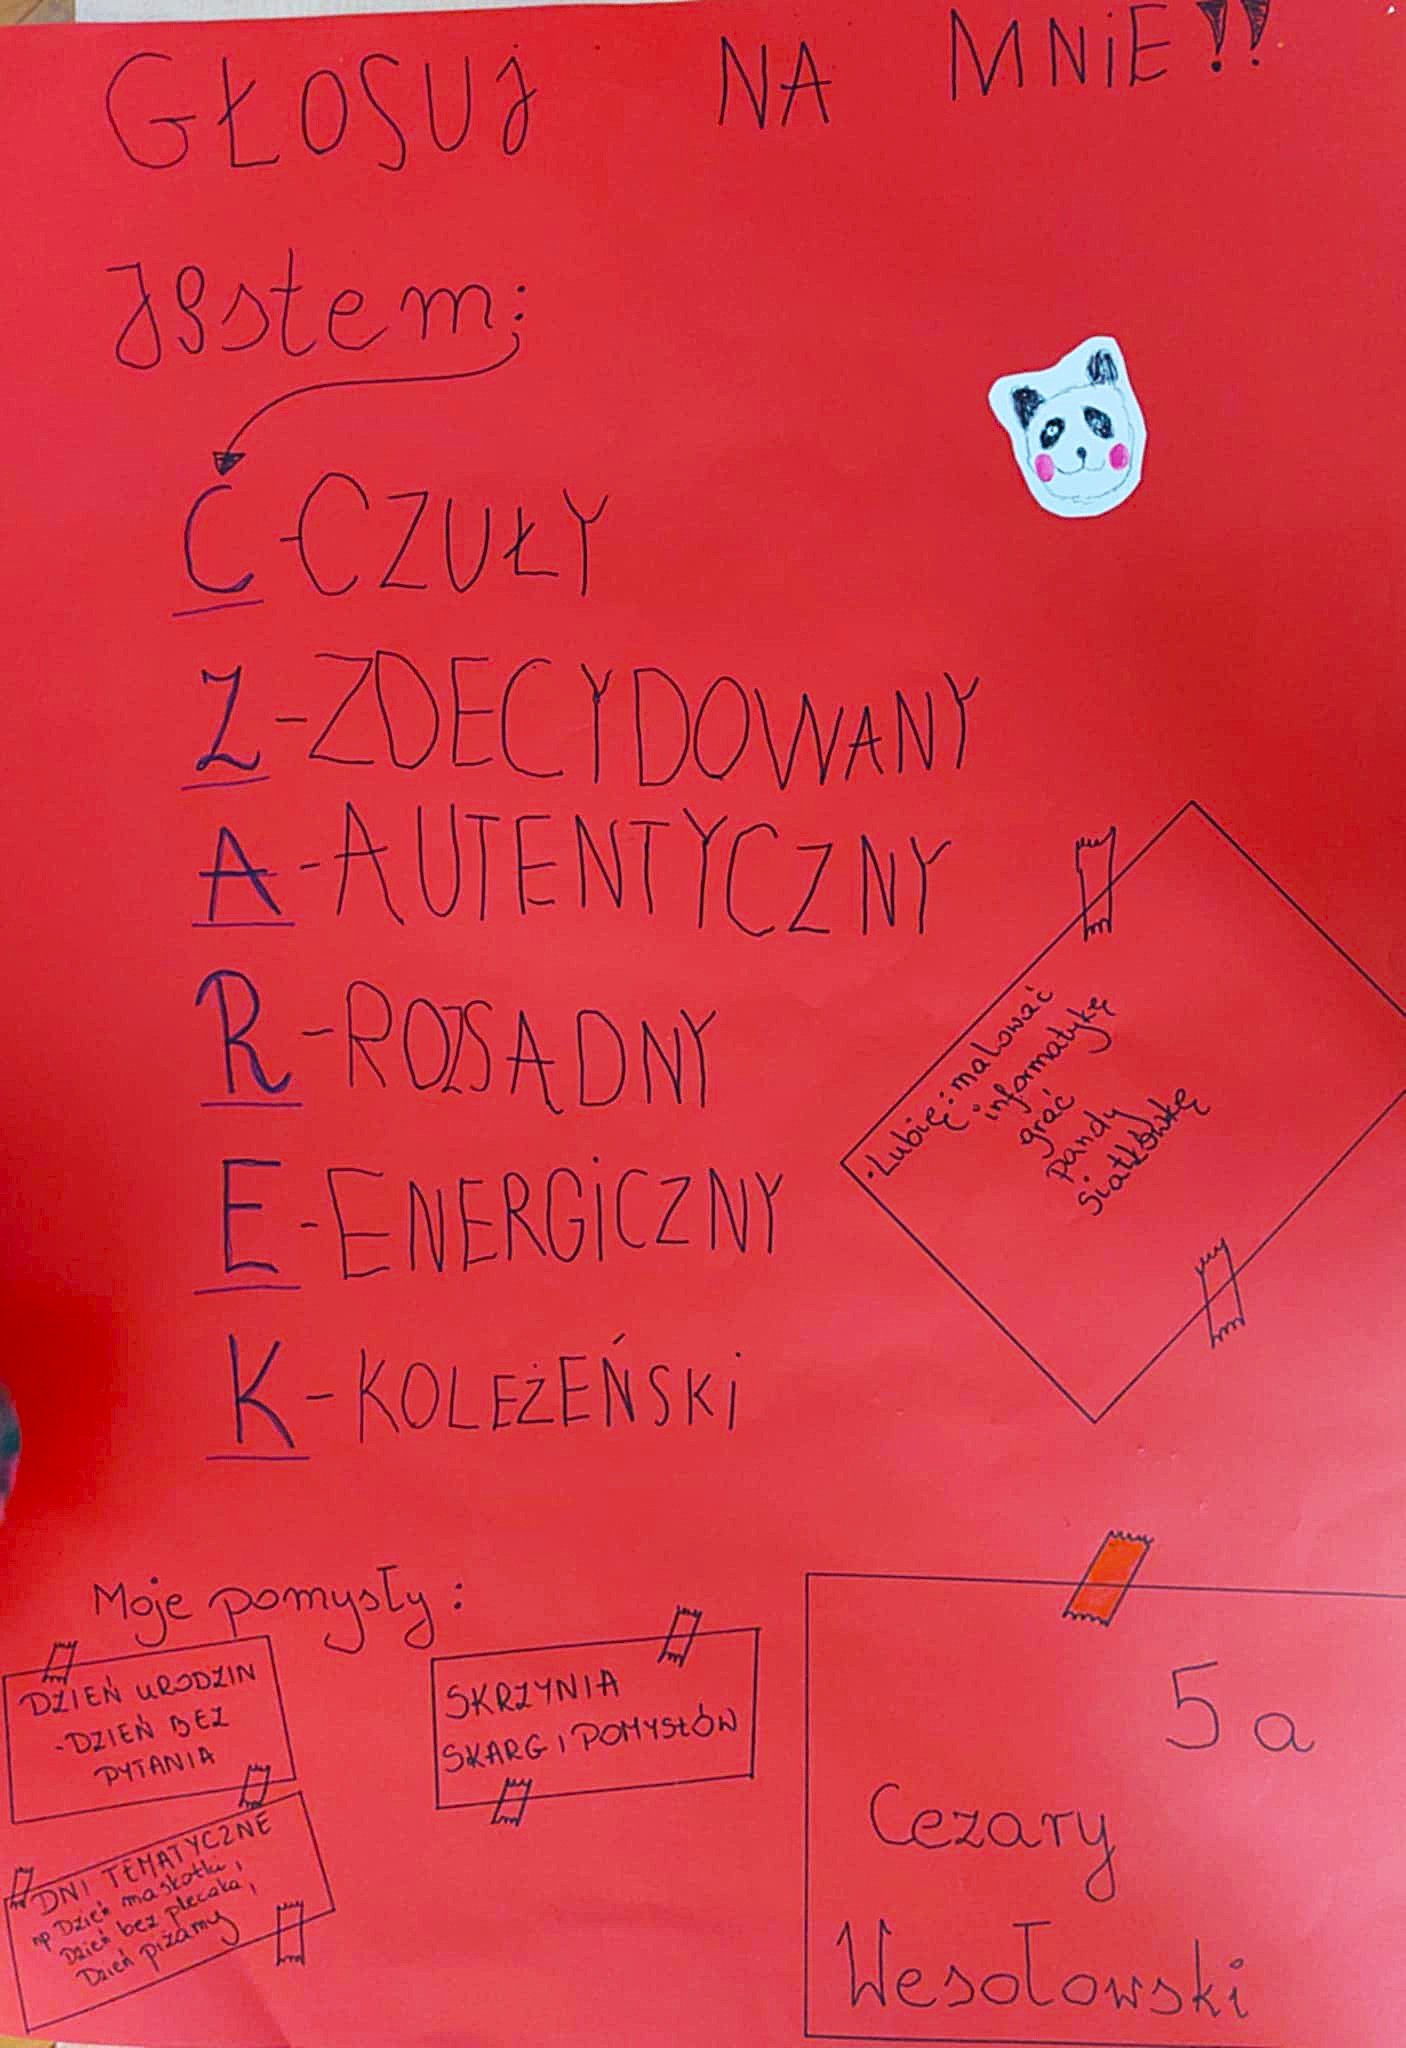 GŁOSUJ NA MNiE!!
Jestem:
C - CZUŁY
Z - ZDECYDOWANY
A - AUTENTYCZNY
R - ROZSĄDNY
E - ENERGiCZNY
K - KOLEŻEŃSKi
• Lubię: malować
informatykę
grać
pandy
siatkówkę
Moje pomysły:
DZIEŃ URODZIN
- DZIEŃ BEZ
PYTANIA
SKRZYNIA
SKARG I POMYSŁÓW
DNI TEMATYCZNE
np Dzień maskotki,
Dzień bez plecaka,
Dzień piżamy
5a
Cezary
Wesołowski